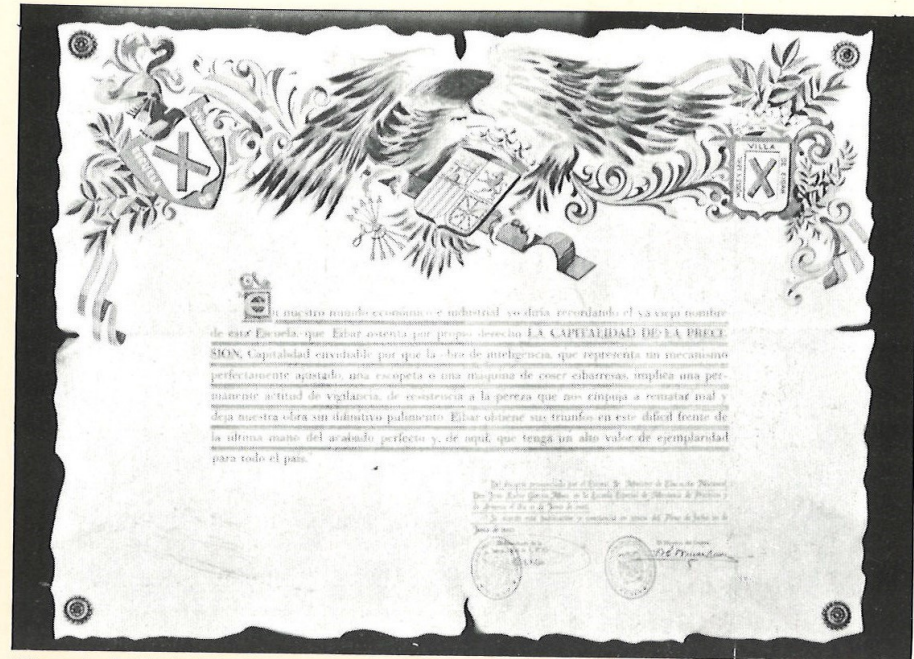 VILLA
NOBLE Y LEAL
DE EIBAR
En nuestro mundo económico e industrial yo diría recordando el ya viejo nombre
de esta Escuela, que Eibar ostenta por propio derecho LA CAPITALIDAD DE LA PRECI-
SION, Capitalidad envidiable por que la obra de inteligencia, que representa un mecanismo
perfectamente ajustado, una escopeta o una máquina de coser eibarresas, implica una per-
manente actitud de vigilancia, de resistencia a la pereza que nos empuja a rematar mal y
deja nuestra obra sin difinitivo pulimento. Eibar obtiene sus triunfos en este difícil frente de
la última mano del acabado perfecto y, de aquí, que tenga un alto valor de ejemplaridad
para todo el país."
Del discurso pronunciado por el Excmo. Sr. Ministro de Educación Nacional
Don en la Escuela Especial de Mecánica de Precisión y
de Armería el día de Junio de
Se acordó esta publicación y constancia en sesión del Pleno de fecha de
Junio de